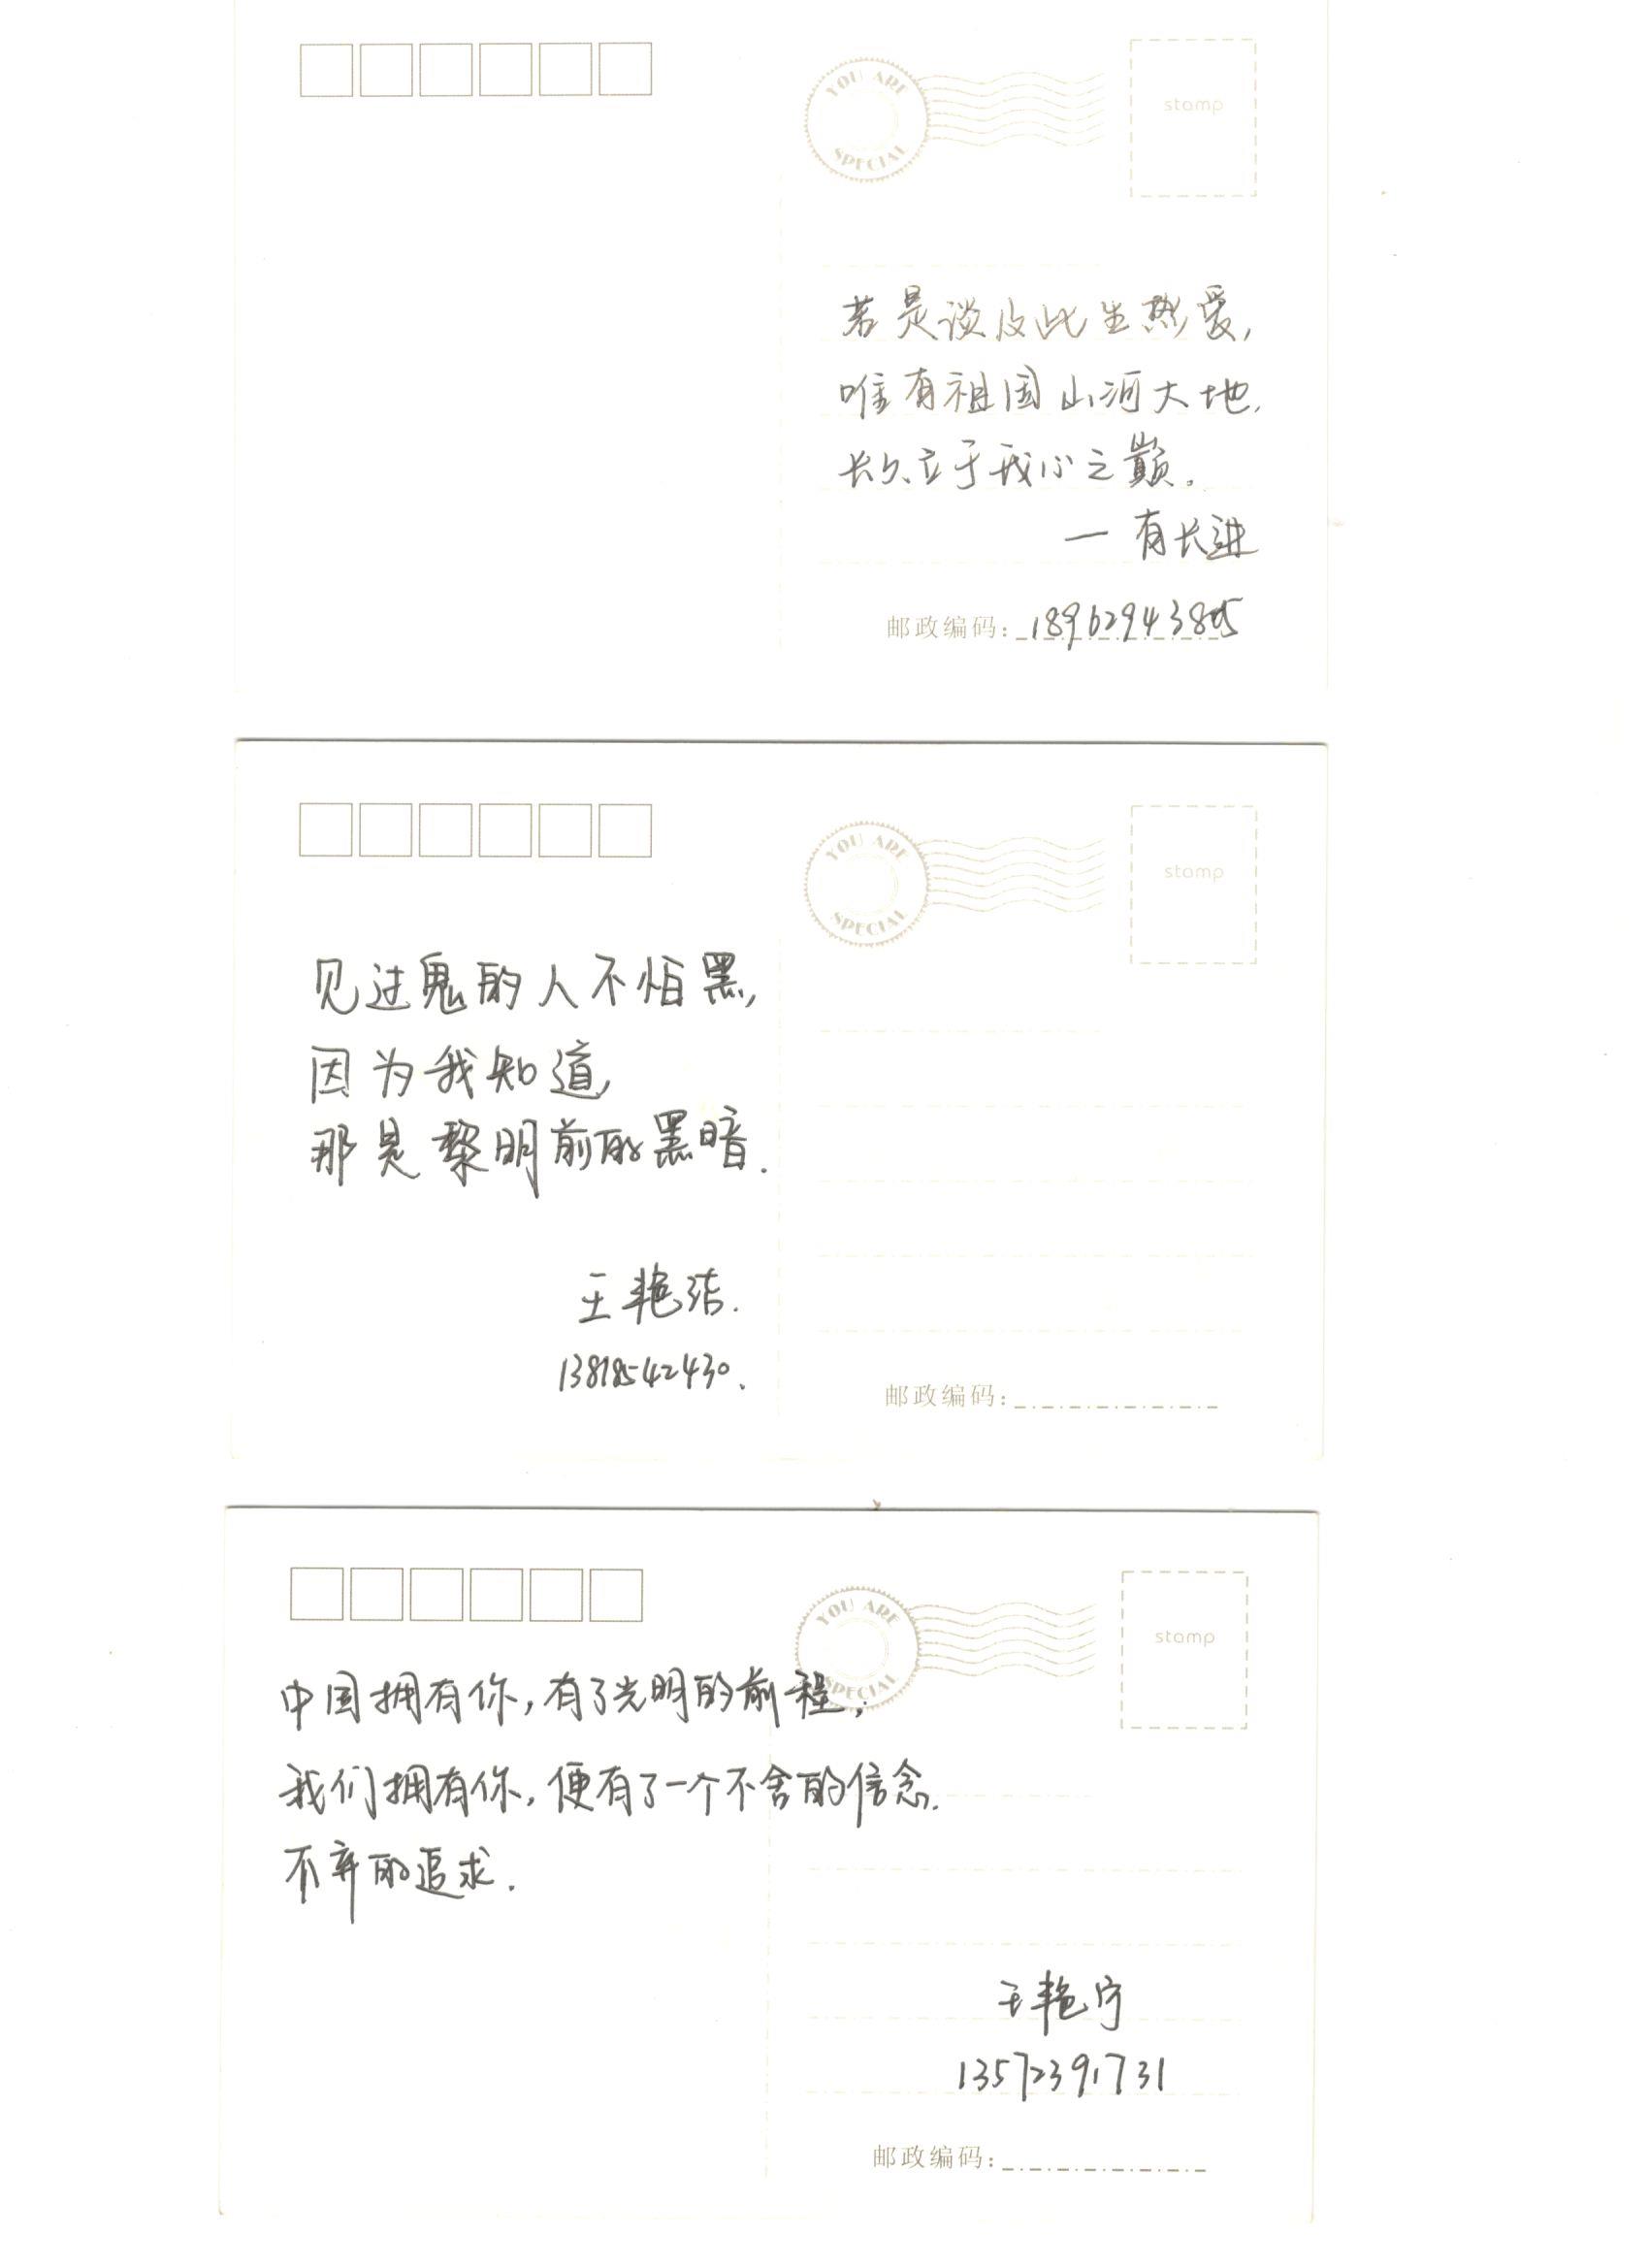 YOU ARE
SPECIAL
stamp
若是谈及此生热爱,
唯有祖国山河大地,
长久立于我心之巅。
一 有长进
邮政编码:
YOU ARE
SPECIAL
stamp
见过鬼的人不怕黑,
因为我知道,
那是黎明前的黑暗.
王艳洁.
13818542430.
邮政编码:
YOU ARE
SPECIAL
stamp
中国拥有你,有了光明的前程,
我们拥有你,便有了一个不舍的信念.
不弃的追求.
王艳宁
13572391731
邮政编码: